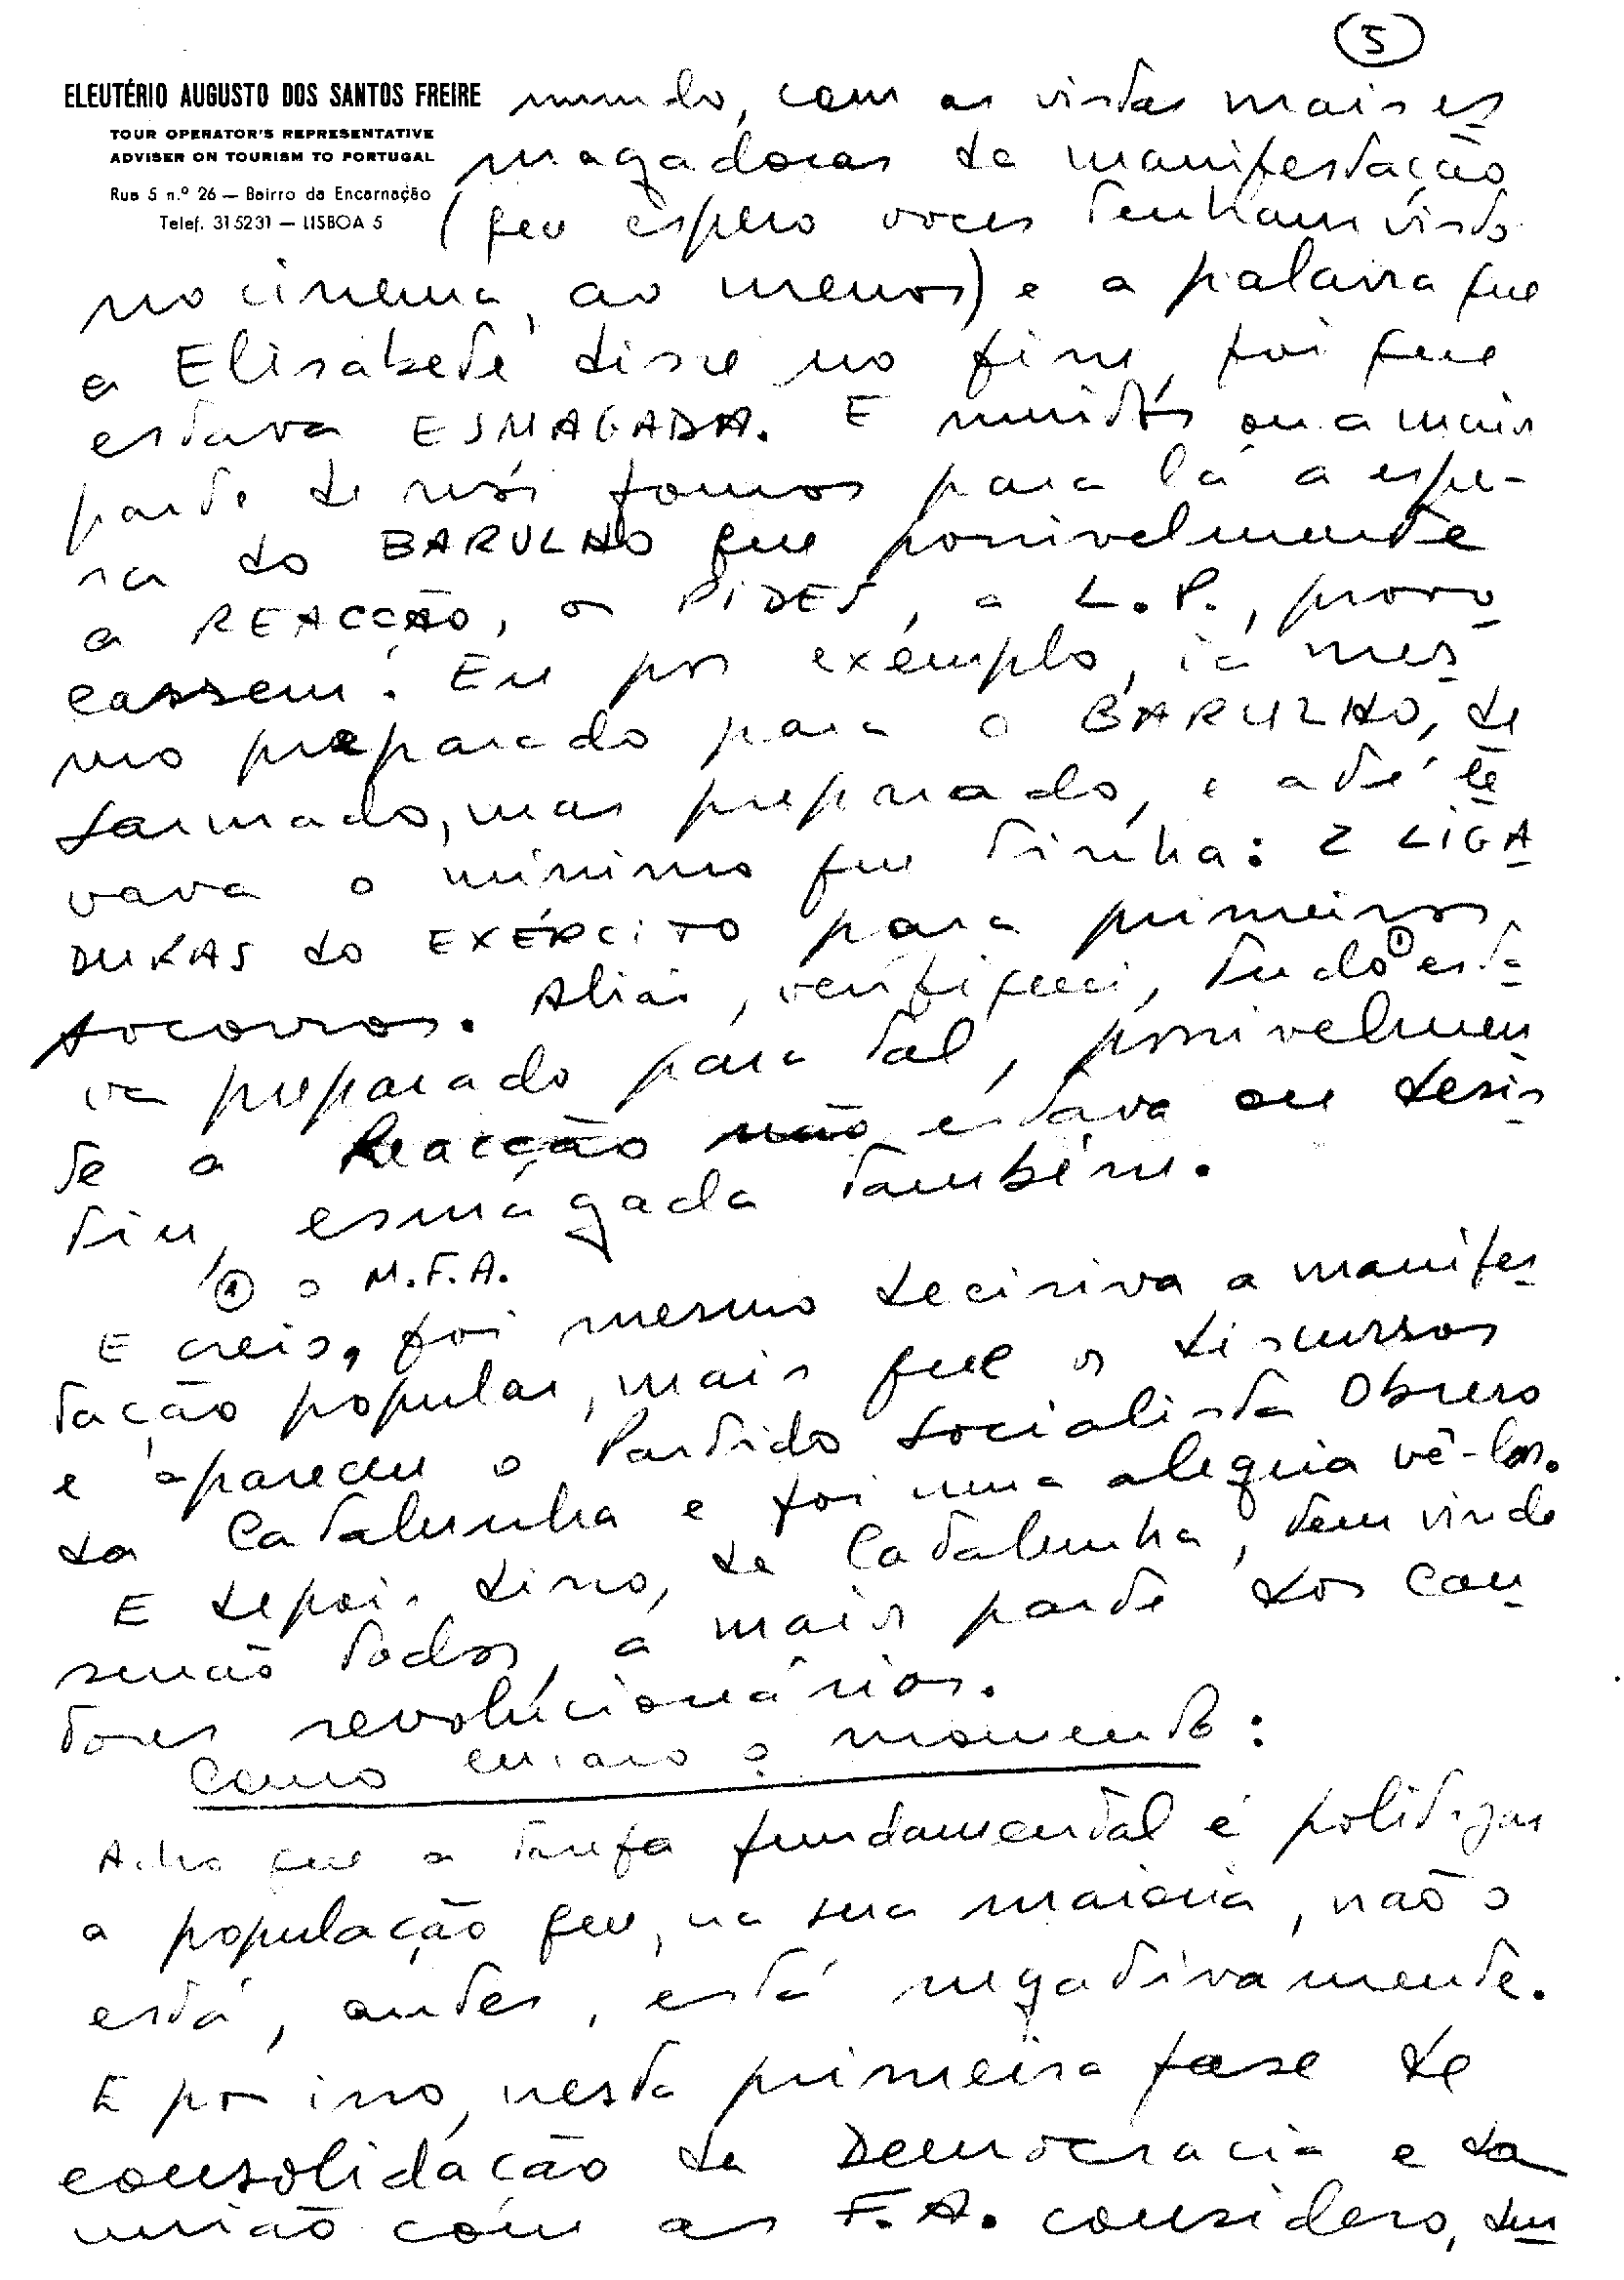 5
ELEUTÉRIO AUGUSTO DOS SANTOS FREIRE
TOUR OPERATOR'S REPRESENTATIVE
ADVISER ON TOURISM TO PORTUGAL
Rua 5 n.º 26 — Bairro da Encarnação
Telef. 315231 — LISBOA 5
mundo, com as vistas mais es
magadoras da manifestação
(que espero voces tenham visto
no cinema, ao menos) e a palavra que
a Elisabete disse no fim, foi que
estava ESMAGADA. E muitos ou a maior
parte de nós fomos para lá à espe-
ra do BARULHO que possivelmente
a REACÇÃO, os PIDES, a L.P., provo
cassem. Eu por exemplo, ia mes
mo preparado para o BARULHO, de
sarmado, mas preparado, e até le
vava o minimo que tinha: 2 LIGA
DURAS do EXÉRCITO para primeiros
socorros. Aliás, verifiquei, tudo ① esta
va preparado para tal, possivelmen
te a Reacção não estava ou desis
tiu, esmagada também.
① o M.F.A.
E creio, foi mesmo decisiva a manifes
tação popular, mais que os discursos
e apareceu o Partido Socialista Obrero
da Catalunha e foi uma alegria vê-los.
E depois disso, de Catalunha, tem vindo
senão todos, a maior parte dos can
tores revolucionários.
Como encaro o momento:
Acho que a tarefa fundamental é politizar
a população que, na sua maioria, não o
está, antes, está negativamente.
E por isso, nesta primeira fase de
consolidação da Democracia e da
união com as F.A. considero, um